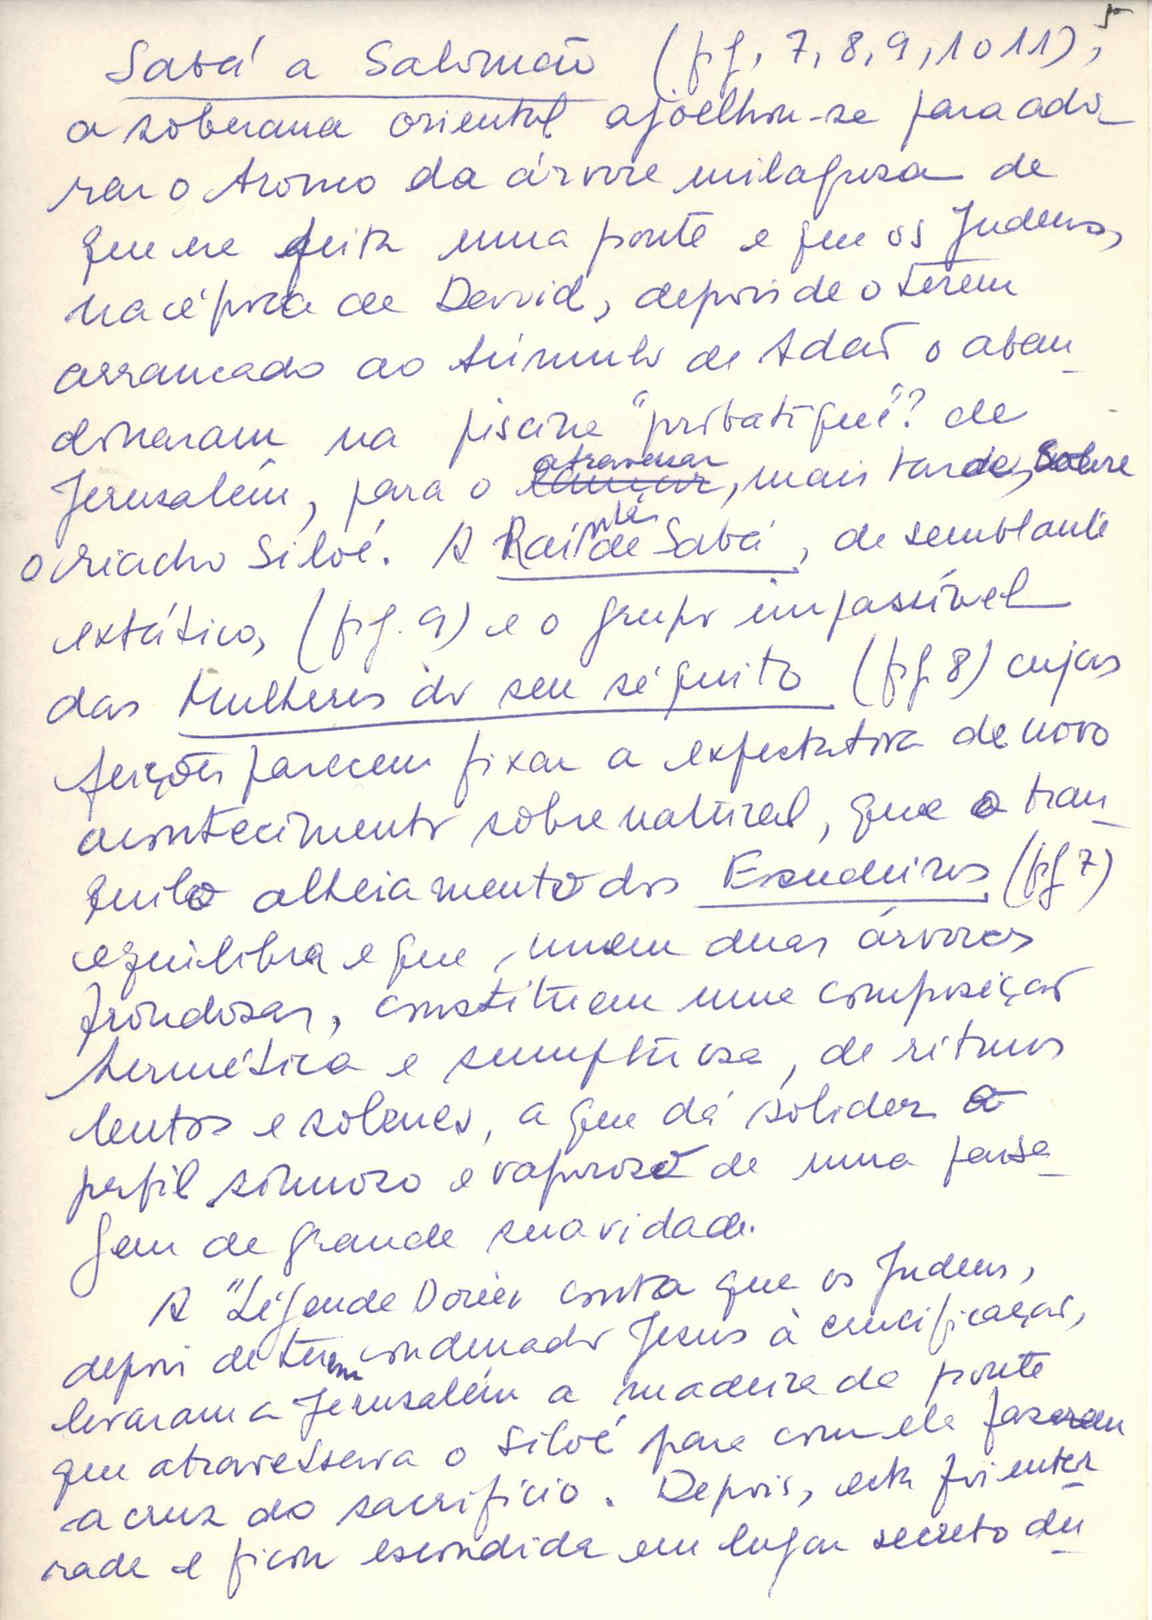 Sabá a Salomão (fig. 7, 8, 9, 10 11);
a soberana oriental ajoelhou-se para ado-
rar o tronco da árvore milagrosa de
que era feita uma ponte e que os Judeus,
na época de David, depois de o terem
arrancado ao túmulo de Adão o aban-
donaram na piscina "probatique"? de
Jerusalém, para o lançar atravessar, mais tarde, sobre
o riacho Siloé. A Rainha de Sabá, de semblante
extático, (fig. 9) e o grupo impassível
das Mulheres do seu séquito (fig 8) cujas
feições parecem fixar a expectativa de novo
acontecimento sobrenatural, que o tran-
quilo alheiamento dos Escudeiros (fig 7)
equilibra e que, unem duas árvores
frondosas, constituem uma composição
hermética e sumptuosa, de ritmos
lentos e solenes, a que dá solidez o
perfil sinuoso e vaporoso de uma paisa-
gem de grande suavidade.
A "Légende Dorée" conta que os Judeus,
depois de terem condenado Jesus à crucificação,
levaram a Jerusalém a madeira da ponte
que atravessava o Siloé para com ela fazerem
a cruz do sacrifício. Depois, esta foi enter-
rada e ficou escondida em lugar secreto du-